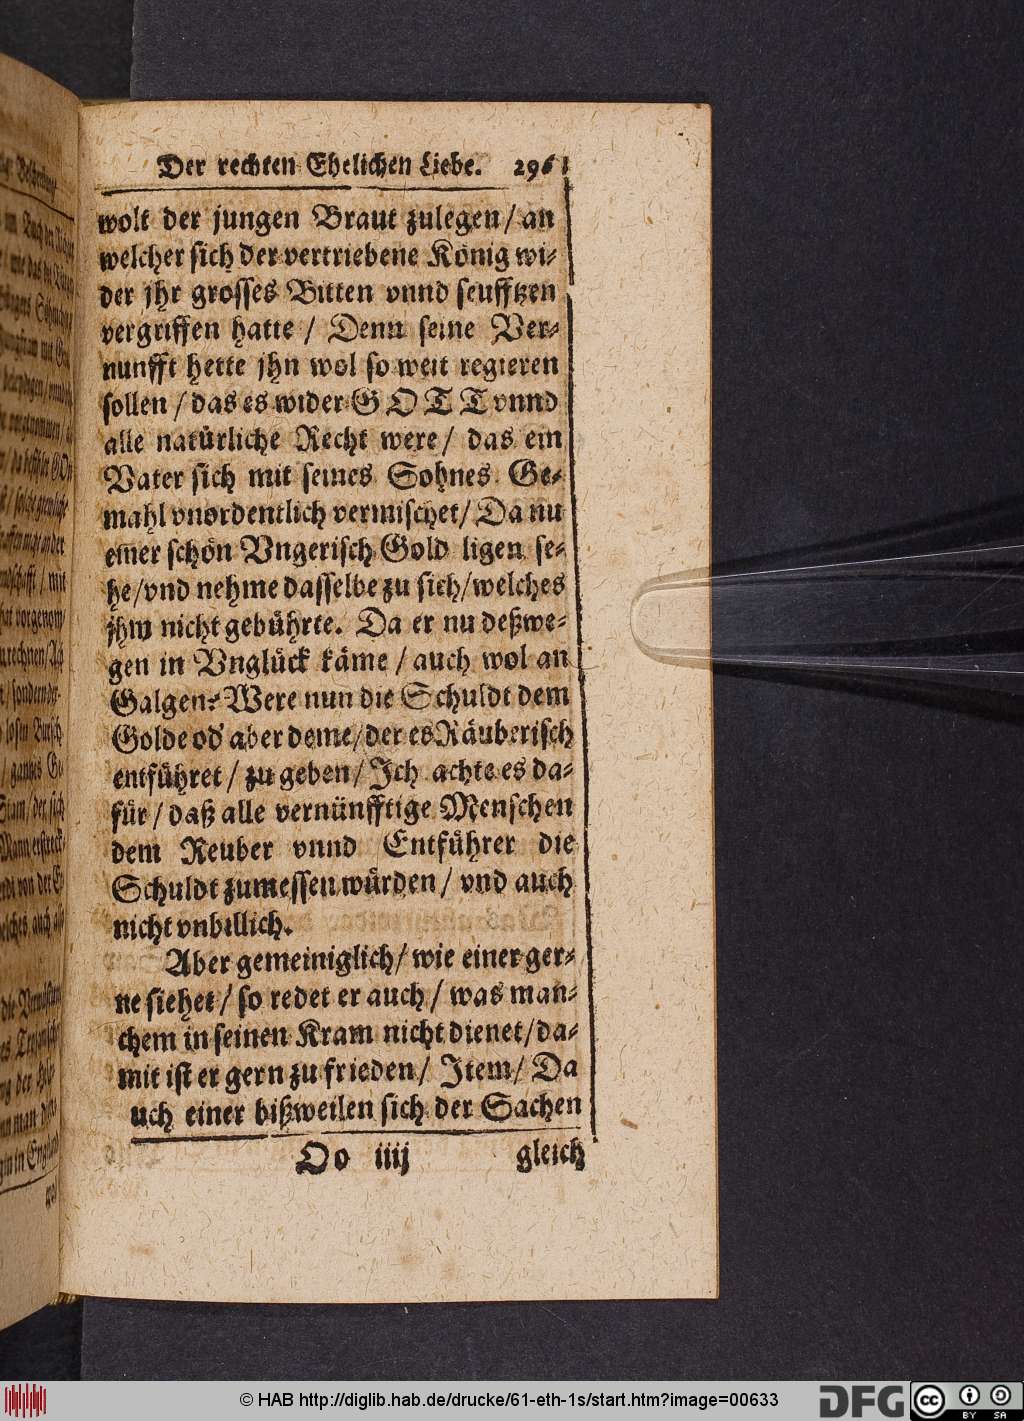 Der rechten Ehelichen Liebe. 296
wolt der jungen Braut zulegen / an
welcher sich der vertriebene König wi-
der jhr grosses Bitten vnnd seufftzen
vergriffen hatte / Denn seine Ver-
nunfft hette jhn wol so weit regieren
sollen / das es wider GOTT vnnd
alle natürliche Recht were / das ein
Vater sich mit seines Sohnes Ge-
mahl vnordentlich vermischet / Da nu
einer schön Vngerisch Gold ligen se-
he / vnd nehme dasselbe zu sich / welches
jhm nicht gebührte. Da er nu deßwe-
gen in Vnglück käme / auch wol an
Galgen: Were nun die Schuldt dem
Golde od' aber deme / der es Räuberisch
entführet / zu geben / Ich achte es da-
für / daß alle vernünfftige Menschen
dem Reuber vnnd Entführer die
Schuldt zumessen würden / vnd auch
nicht vnbillich.
Aber gemeiniglich / wie einer ger-
ne siehet / so redet er auch / was man-
chem in seinen Kram nicht dienet / da-
mit ist er gern zu frieden / Item / Da
uch einer bißweilen sich der Sachen
Oo iiij gleich
© HAB http://diglib.hab.de/drucke/61-eth-1s/start.htm?image=00633
DFG cc BY SA